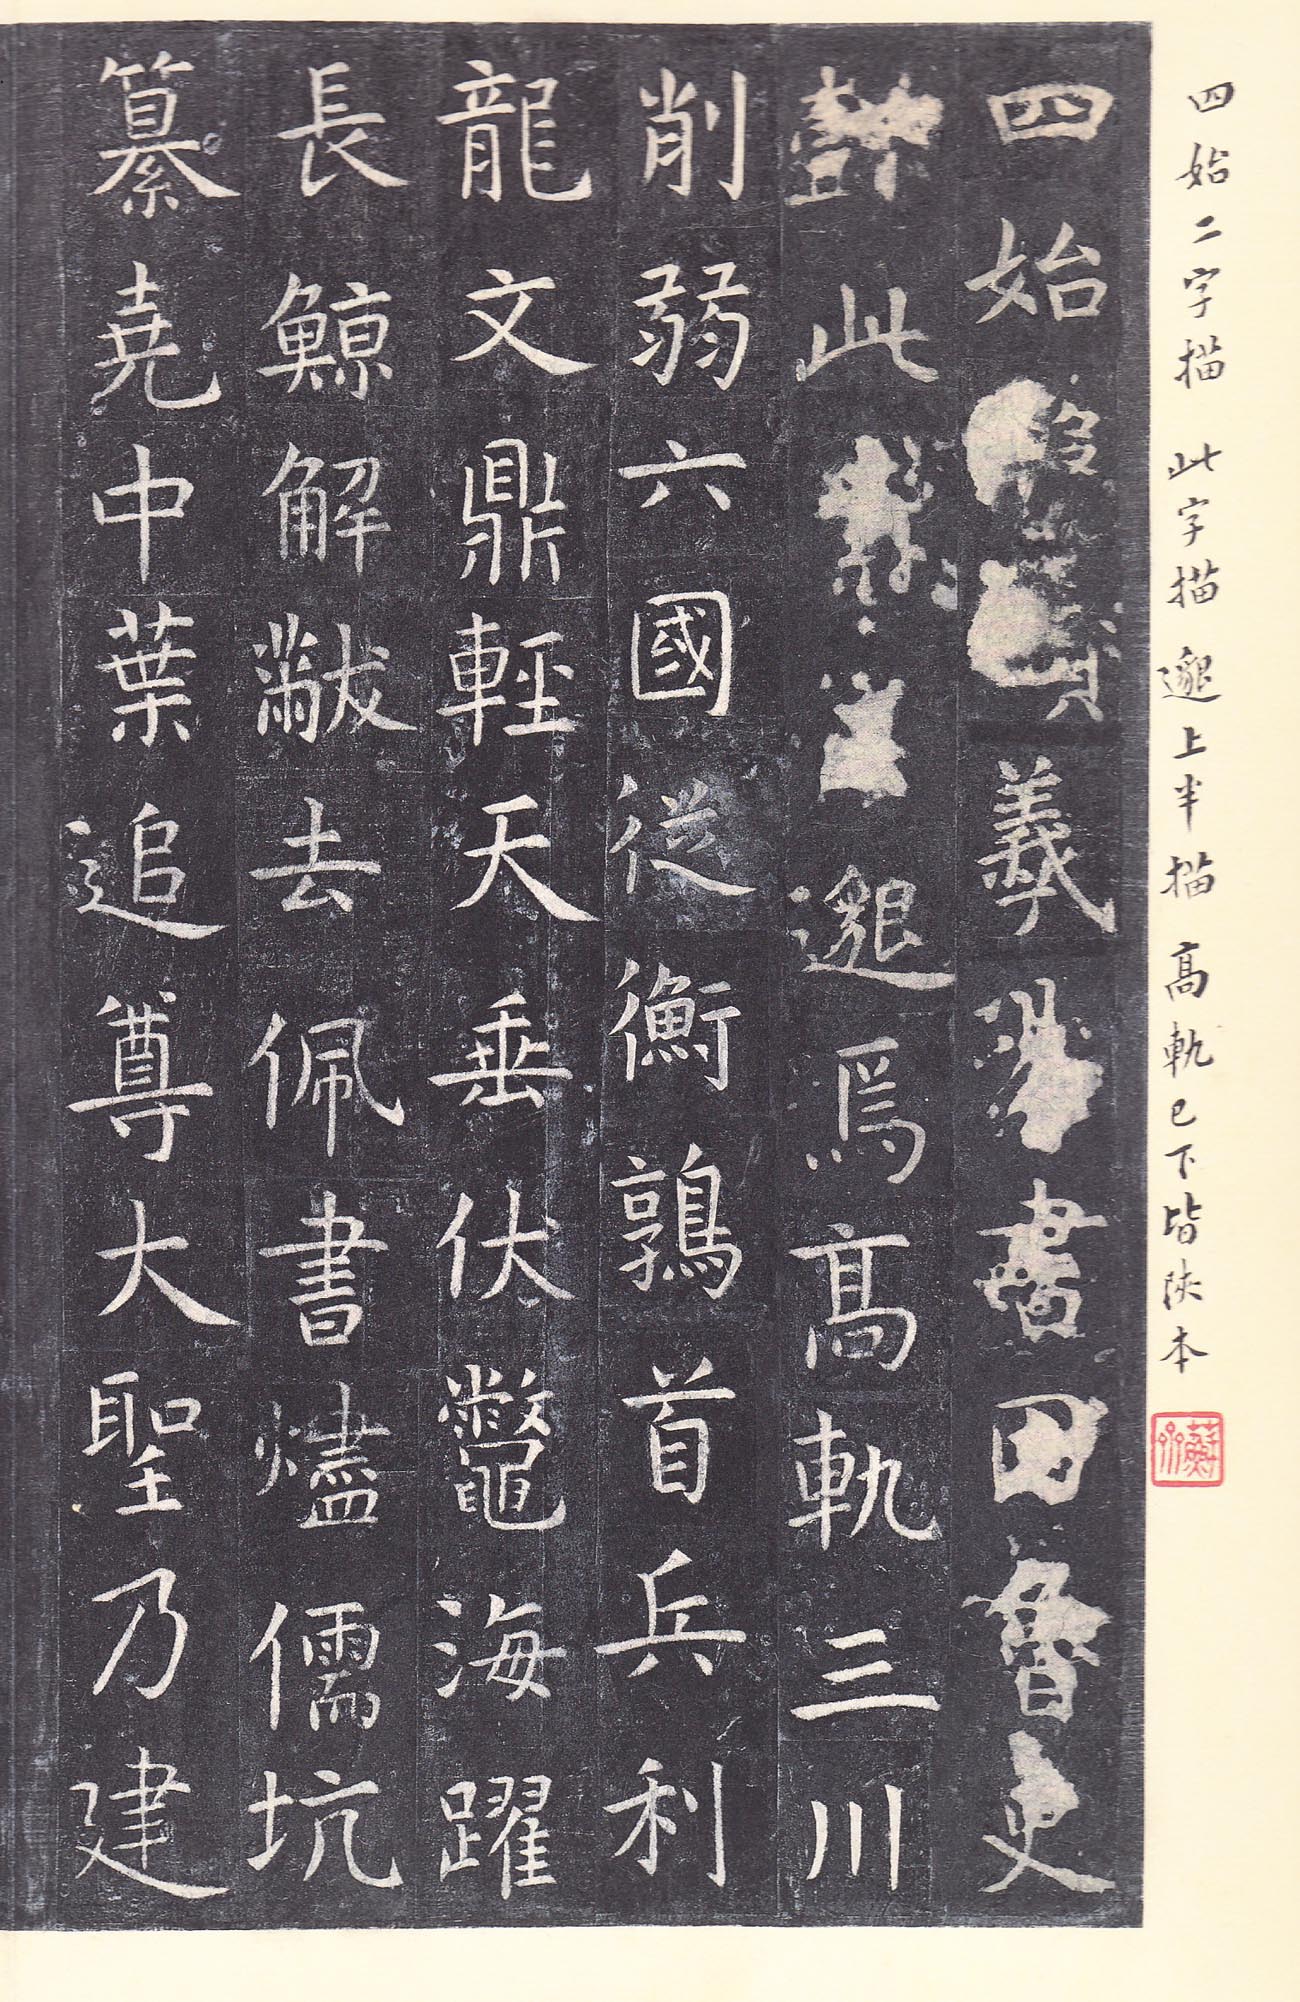 四始二字描 此字描 邈上半描 高軌已下皆陝本
四始羲書因魯史
懿此素王邈焉高軌三川
削弱六國從衡鶉首兵利
龍文鼎輕天垂伏鼈海躍
長鯨解黻去佩書燼儒坑
纂堯中葉追尊大聖乃建